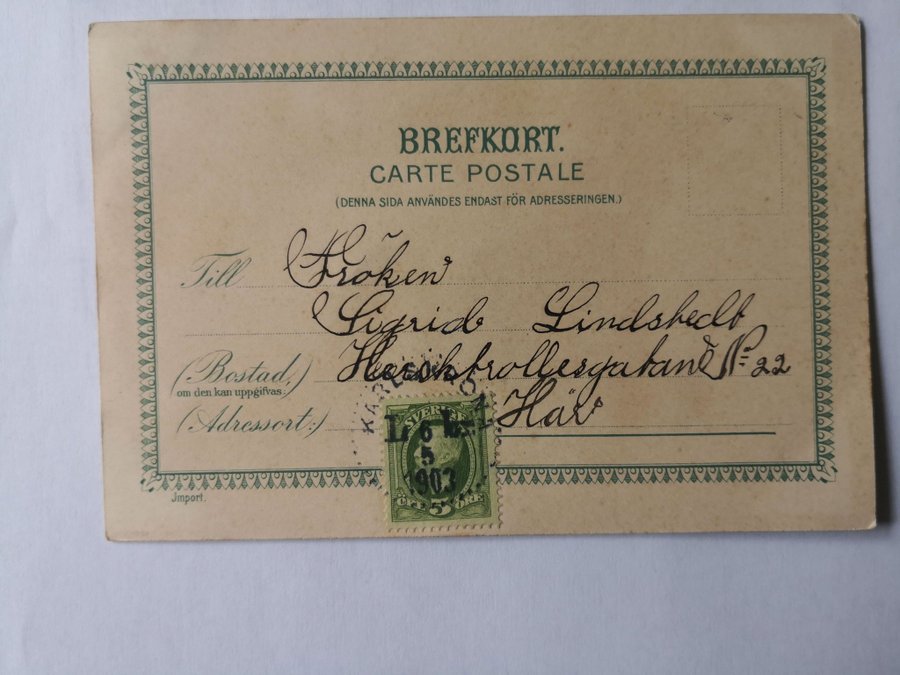 BREFKORT.
CARTE POSTALE
(DENNA SIDA ANVÄNDES ENDAST FÖR ADRESSERINGEN.)
Till Fröken
Sigrid Lindstedt
(Bostad,) No 22
om den kan uppgifvas:
(Adressort:) Här
SVERIGE
6
5
1903
5 ÖRE
Import.